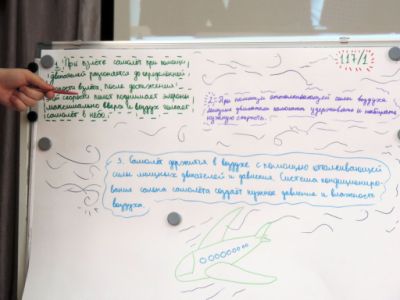 1. При взлёте самолёт при помощи
двигателей разгоняется до определённой
скорости взлёта, после достижения
скорости пилот поднимает
максимально вверх и воздух толкает
самолёт в небо.
117/1
2. При помощи отталкивающей силы воздуха
мощные двигатели помогают удерживать и набирать
нужную скорость.
3. Самолёт держится в воздухе с помощью отталкивающей
силы мощных двигателей и давления. Система кондициониро-
вания салона самолёта создаёт нужное давление и влажность
воздуха.